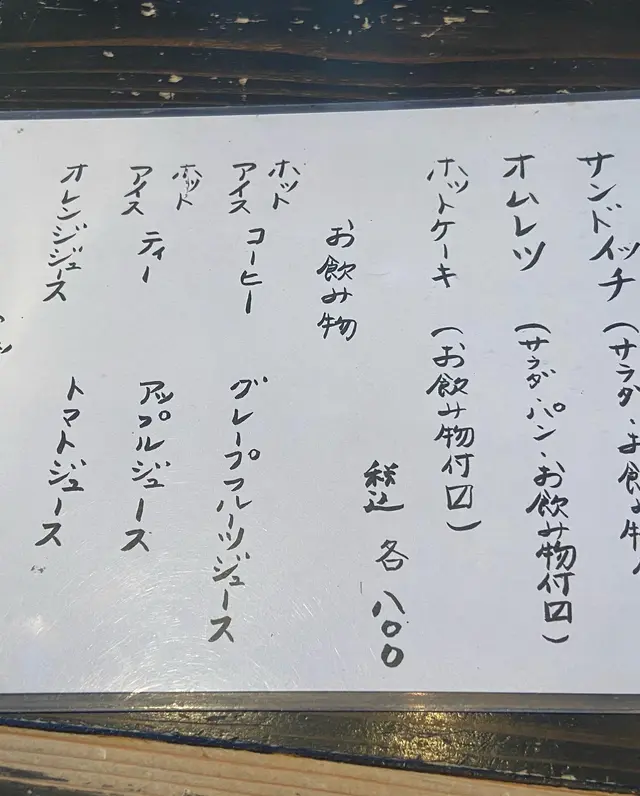 サンドイッチ(サラダ・お飲み物
オムレツ(サラダ・パン・お飲み物付四)
ホットケーキ(お飲み物付四)
税込 各 八〇〇
お飲み物
ホット
アイス コーヒー グレープフルーツジュース
ホット
アイス ティー アップルジュース
オレンジジュース トマトジュース